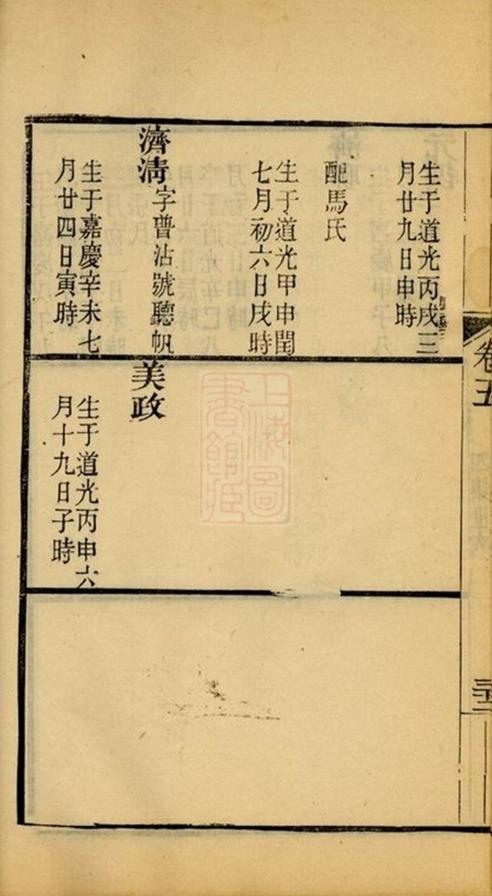 生于道光丙戌三
月廿九日申時
配馬氏
生于道光甲申閏
七月初六日戌時
濟清
字曹沽號聽帆
生于嘉慶辛未七
月廿四日寅時
美政
生于道光丙申六
月十九日子時
卷五
上海圖書館藏